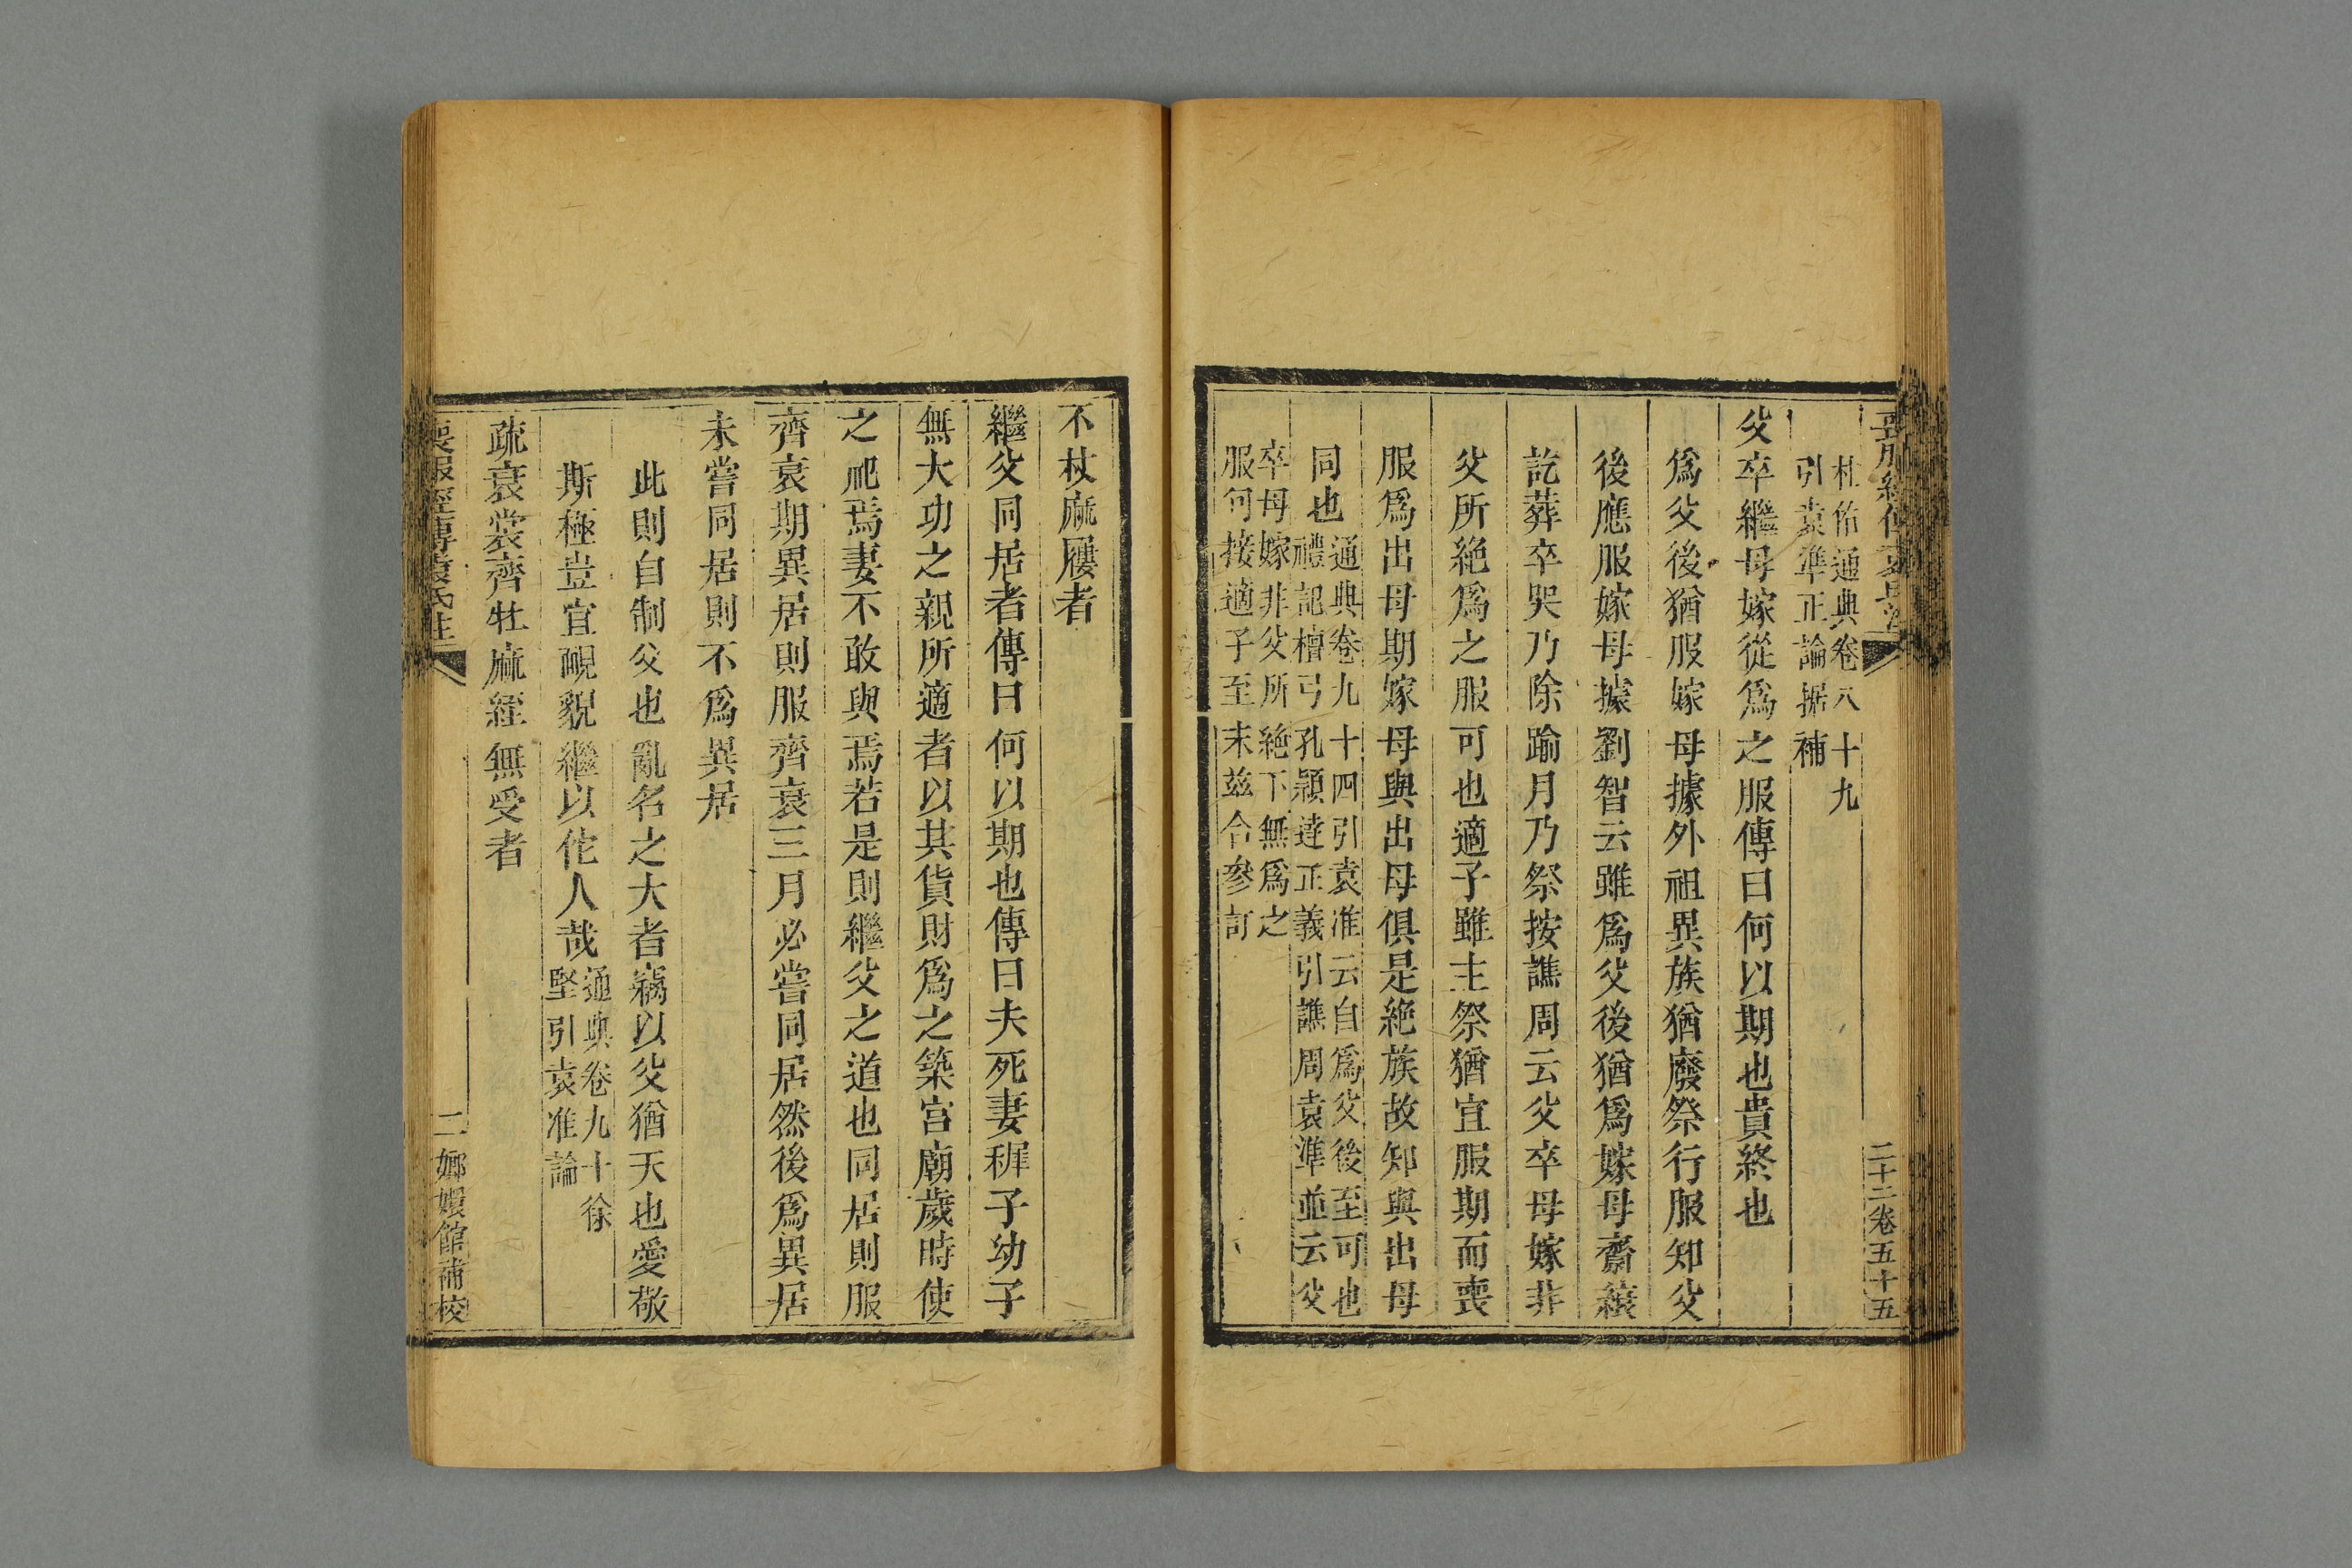 喪服經傳袁氏注
二十二卷五十五
杜佑通典卷八十九
引袁準正論据補
父卒繼母嫁從爲之服傳曰何以期也貴終也
爲父後猶服嫁母據外祖異族猶廢祭行服知父
後應服嫁母據劉智云雖爲父後猶爲嫁母齋縗
訖葬卒哭乃除踰月乃祭按譙周云父卒母嫁非
父所絶爲之服可也適子雖主祭猶宜服期而喪
服爲出母期嫁母與出母俱是絶族故知與出母
同也
通典卷九十四引袁准云自爲父後至可也
禮記檀弓孔穎達正義引譙周袁準並云父
卒母嫁非父所絶下無爲之
服何接適子至末兹合參訂
不杖麻屨者
繼父同居者傳曰何以期也傳曰夫死妻穉子幼子
無大功之親所適者以其貨財爲之築宫廟歲時使
之祀焉妻不敢與焉若是則繼父之道也同居則服
齊衰期異居則服齊衰三月必嘗同居然後爲異居
未嘗同居則不爲異居
此則自制父也亂名之大者竊以父猶天也愛敬
斯極豈宜靦貌繼以佗人哉
通典卷九十徐
堅引袁准論
疏衰裳齊牡麻絰無受者
喪服經傳袁氏注
二
嫏嬛館補校